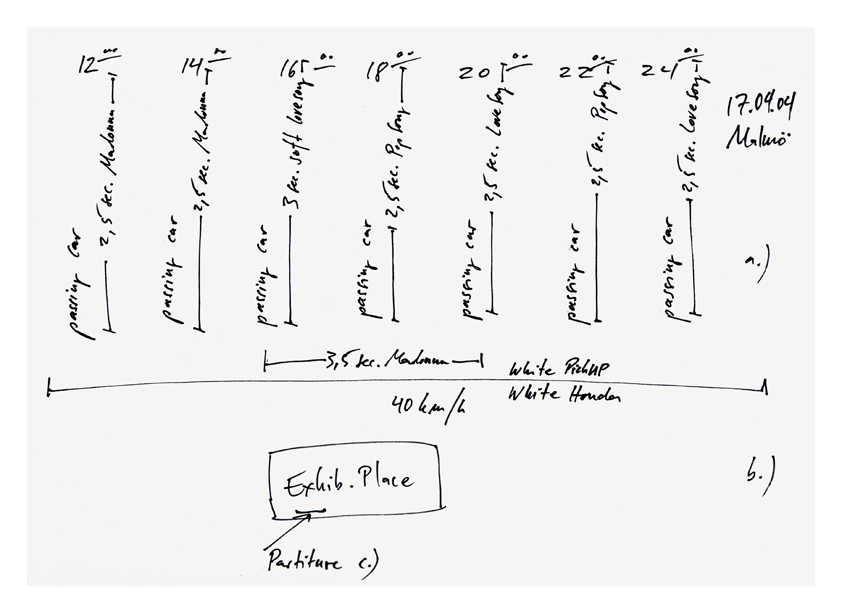 12⁰⁰
14⁰⁰
16⁰⁰
18⁰⁰
20⁰⁰
22⁰⁰
24⁰⁰
passing car 2,5 sec. Madonna
passing car 2,5 sec. Madonna
passing car 3 sec. soft lovesong
passing car 2,5 sec. PopSong
passing car 2,5 sec. LoveSong
passing car 2,5 sec. PopSong
passing car 2,5 sec. LoveSong
17.09.04
Malmö
a.)
3,5 sec. Madonna
White PickUP
40 km/h
White Honda
b.)
Exhib. Place
Partiture c.)